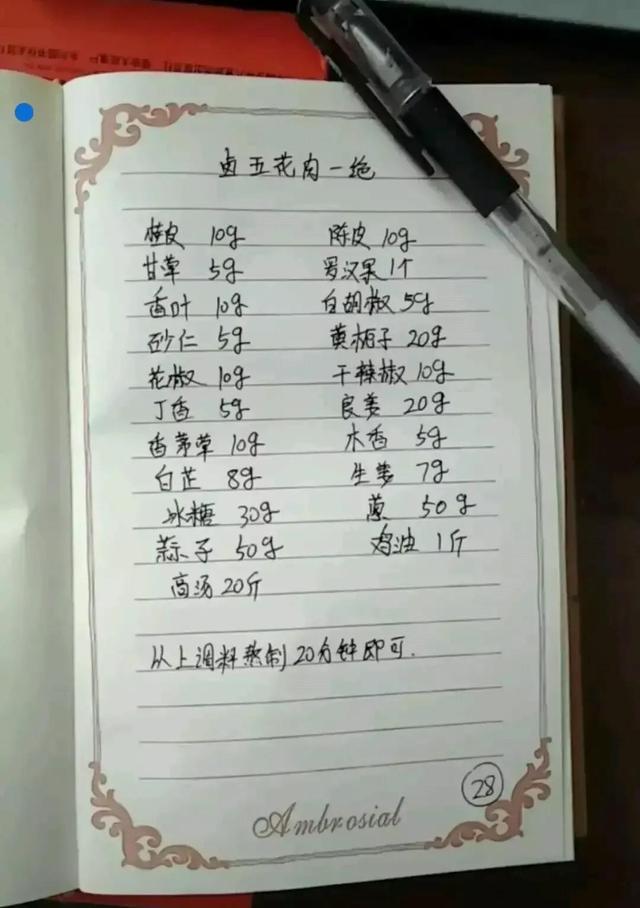 卤五花肉一绝
桂皮 10g 陈皮 10g
甘草 5g 罗汉果1个
香叶 10g 白胡椒 5g
砂仁 5g 黄栀子 20g
花椒 10g 干辣椒 10g
丁香 5g 良姜 20g
香茅草 10g 木香 5g
白芷 8g 生姜 7g
冰糖 30g 葱 50g
蒜子 50g 鸡油 1斤
高汤 20斤
从上调料熬制20分钟即可.
28
Ambrosial